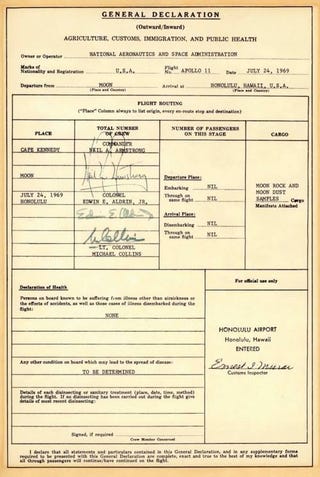 GENERAL DECLARATION
(Outward/Inward)
AGRICULTURE, CUSTOMS, IMMIGRATION, AND PUBLIC HEALTH
Owner or Operator NATIONAL AERONAUTICS AND SPACE ADMINISTRATION
Marks of Nationality and Registration U.S.A. Flight No. APOLLO 11 Date JULY 24, 1969
Departure from MOON Arrival at HONOLULU, HAWAII, U.S.A.
(Place and Country) (Place and Country)
FLIGHT ROUTING
("Place" Column always to list origin, every en-route stop and destination)
PLACE TOTAL NUMBER OF CREW NUMBER OF PASSENGERS ON THIS STAGE CARGO
CAPE KENNEDY COMMANDER
NEIL A. ARMSTRONG
MOON
JULY 24, 1969
HONOLULU
COLONEL
EDWIN E. ALDRIN, JR.
LT. COLONEL
MICHAEL COLLINS
Departure Place:
Embarking NIL
Through on same flight NIL
Arrival Place:
Disembarking NIL
Through on same flight NIL
MOON ROCK AND
MOON DUST
SAMPLES Cargo
Manifests Attached
Declaration of Health
Persons on board known to be suffering from illness other than airsickness or
the effects of accidents, as well as those cases of illness disembarked during the
flight:
NONE
Any other condition on board which may lead to the spread of disease:
TO BE DETERMINED
Details of each disinsecting or sanitary treatment (place, date, time, method)
during the flight. If no disinsecting has been carried out during the flight give
details of most recent disinsecting:
Signed, if required
Crew Member Concerned
For official use only
HONOLULU AIRPORT
Honolulu, Hawaii
ENTERED
Customs Inspector
I declare that all statements and particulars contained in this General Declaration, and in any supplementary forms
required to be presented with this General Declaration are complete, exact and true to the best of my knowledge and that
all through passengers will continue/have continued on the flight.